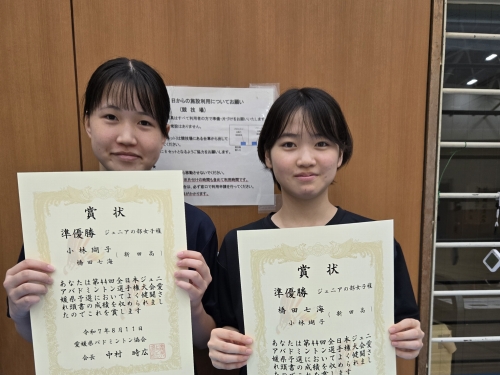 日からの施設利用についてお願い
（競技場）
賞状
準優勝 ジュニアの部女子様
小林瑚子
（新田高）
橋田七海
あなたは第44回全日本ジュニ
アバドミントン選手権大会
愛媛県予選においてよく健闘さ
れ頭書の成績を収められまし
たのでこれを賞します
令和7年8月11日
愛媛県バドミントン協会
会長 中村 時広
賞状
準優勝 ジュニアの部女子様
橋田七海
（新田高）
小林瑚子
あなたは第44回全日本ジュニ
アバドミントン選手権大会
愛媛県予選においてよく健闘さ
れ頭書の成績を収められまし